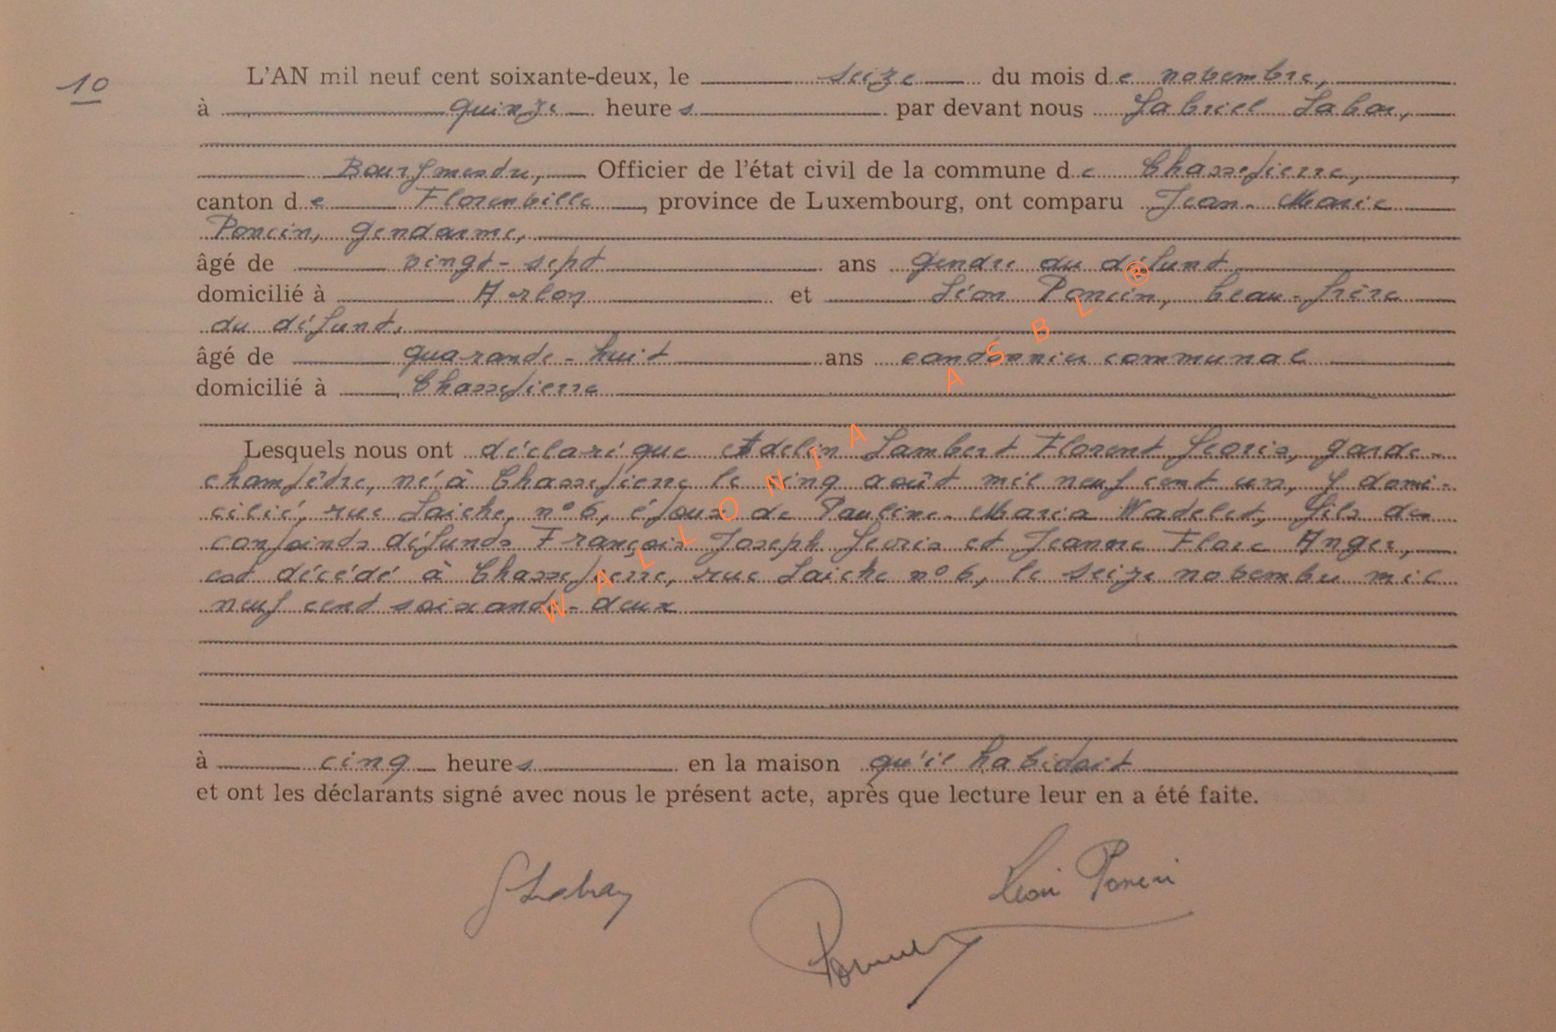 10
L'AN mil neuf cent soixante-deux, le seize du mois de novembre,
à quinze heures par devant nous Gabriel Labar,
Bourgmestre, Officier de l'état civil de la commune de Chassepierre,
canton de Florenville, province de Luxembourg, ont comparu Jean-Marie
Poncin, gendarme,
âgé de vingt-sept ans gendre du défunt
domicilié à Arlon et Léon Poncin, beau-frère
du défunt,
âgé de quarante-huit ans cantonnier communal
domicilié à Chassepierre
Lesquels nous ont déclaré que Adelin Lambert Florent Georis, garde-
champêtre, né à Chassepierre le cinq août mil neuf cent un, y domi-
cilié, rue Laiche, n° 6, époux de Pauline-Maria Wadelet, fils des
conjoints défunts François Joseph Georis et Jeanne Flore Anger,
est décédé à Chassepierre, rue Laiche n° 6, le seize novembre mil
neuf cent soixante-deux
à cinq heures en la maison qu'il habitait
et ont les déclarants signé avec nous le présent acte, après que lecture leur en a été faite.
Léon Poncin
WALLONIA ASBL ®